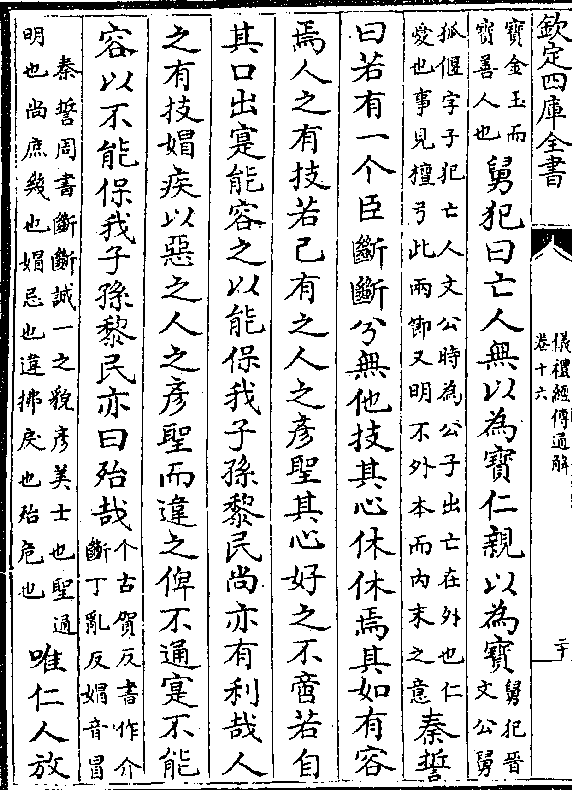 欽定四庫全書
儀禮經傳通解
卷十六
二十
寳金玉而
寳善人也
舅犯曰亡人無以為寳仁親以為寳
舅犯晉
文公舅
狐偃字子犯亡人文公時為公子出亡在外也仁
愛也事見檀弓此兩節又明不外本而內末之意
秦誓
曰若有一个臣斷斷兮無他技其心休休焉其如有容
焉人之有技若己有之人之彦聖其心好之不啻若自
其口出寔能容之以能保我子孫黎民尚亦有利哉人
之有技媢疾以惡之人之彦聖而違之俾不通寔不能
容以不能保我子孫黎民亦曰殆哉
个古賀反書作介
斷丁亂反媢音冒
秦誓周書斷斷誠一之貌彦美士也聖通
明也尚庶幾也媢忌也違拂戾也殆危也
唯仁人放